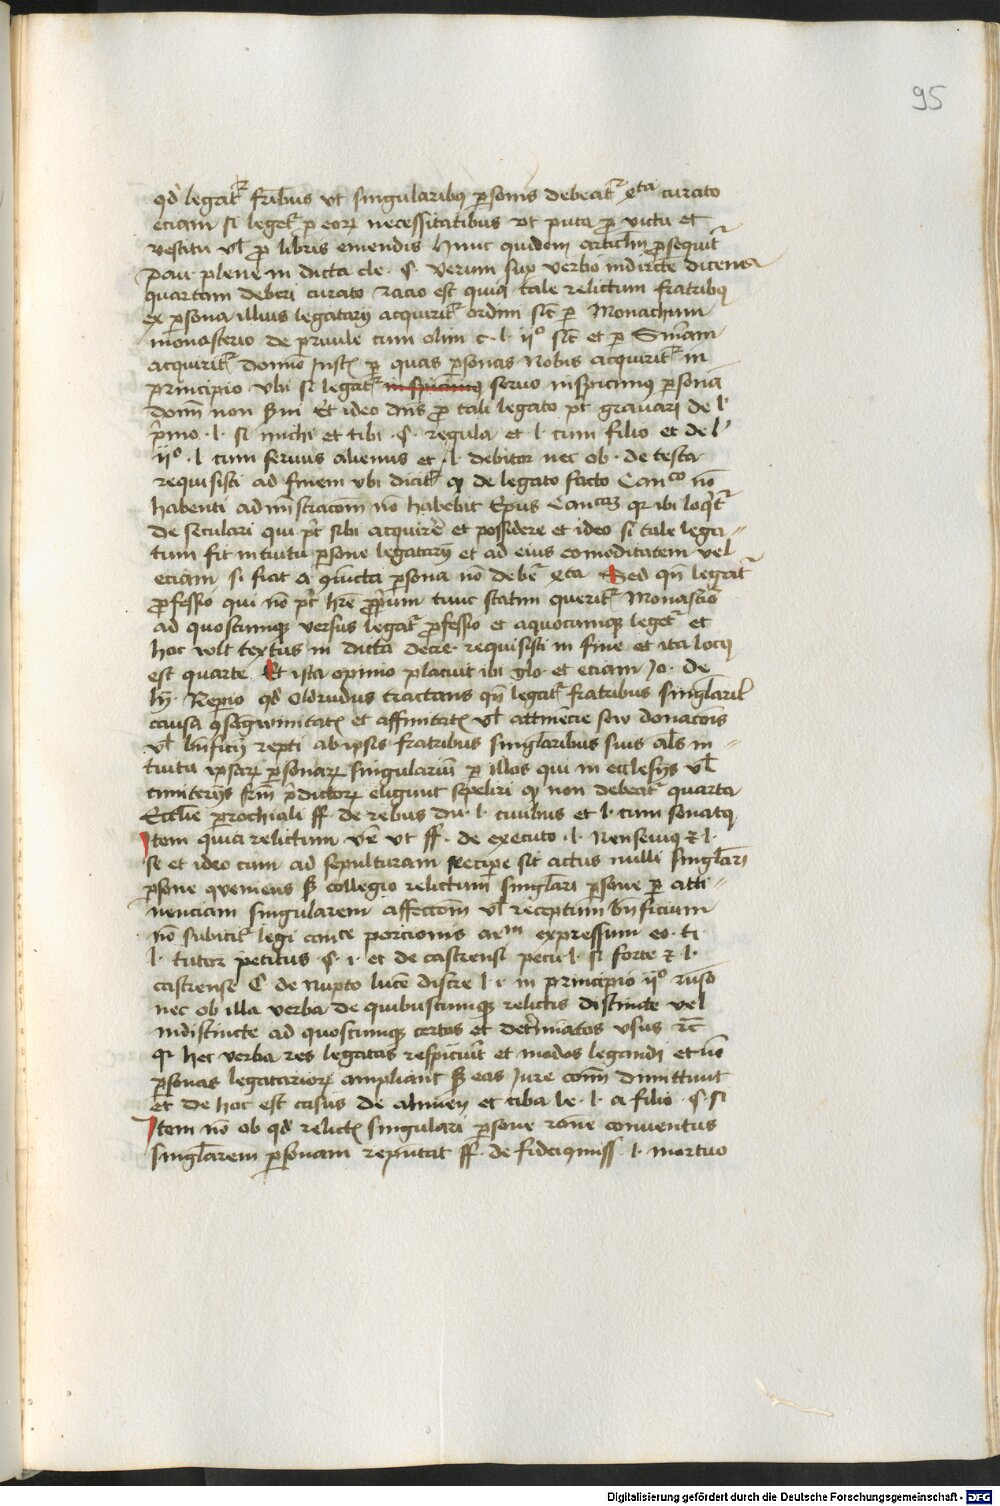 95
qd legatr fribus vt singularibus personis debeatr xta curato
eciam si legetr p eorum necessitatibus vt puta pro victu et
vestitu vl pro libris emendis Hunc quidem articlm prosequitr
pau plene in dicta cle. §. verum sup verbo indircte dicens
quartam deberi curato racio est quia tale relictum fratribus
ex persona illius legatarij acquiritr ordini sic per Monachum
monasterio de priuile cum olim c. l. ijo sic et per
acquiritr domino Instis per quas personas Nobis acquiritr in
principio vbi si legatr seruo inspicimus persona
domi non serui Et ideo dns pro tali legato pt grauari de l
primo. l. si michi et tibi §. regula et l. cum filio et de l
ijo. l cum seruus alienus et l. debitor nec ob. de testa
requisisti ad finem vbi dicitr qp de legato facto Canco no
habenti administracom no habebit Epus qr ibi loqtr
de seculari qui pt sibi acquirere et possidere et ideo si tale lega-
tum fit intuitu persone legatarij et ad eius comoditatem vel
eciam si fiat a coniuncta persona no debetr xta Sed qn legatr
professo qui no pt hre proprium tunc statim queritr Monasterio
ad quoscumque versus legatr professo et a quocumque legetr et
hoc vult textus in dicta decre. requisisti in fine et ita locus
est quarte Et ista opinio placuit ibi glo et eciam Jo. de
ly. Reperio qd Oldradus tractans qn legatr fratribus singlaril
causa consagwinitatis et affinitatis vl attinecie sew donacois
vl bnficij recpti ab ipsis fratribus singlaribus suis als in-
tuitu ipsarum personarum singularium per illos qui in ecclesijs vl
cimiterijs frm predictorum eligunt sepeliri qp non debeatr quarta
Ecclie parochiali ff. de rebus du. l. ciuibus et l. cum senatus
Item quia relictum vt ff. de excuto. l. Nensenius & l.
si et ideo cum ad sepulturam recipere sit actus nulli singlari
persone conueniens sed collegio relictum singlari persone per atti-
nenciam singularem affectom vl receptum bnficium
no subicitr legi canice porcionis arm expressum eo. ti
l. tutor petitus §. 1. et de castrensi pecu l. si forte & l.
castrense C de nupto luce discre l. 1. in principio ijo
nec ob illa verba de quibuscumque relictis distincte vel
indistincte ad quoscumque certos et determiatos vsus &c
qr hec verba res legatas respiciunt et modos legandi et no
personas legatariorum ampliant sed eas iure comi dimittunt
et de hoc est casus de alimen et ciba le. l. a filio §. si
Item no ob qd relictis singulari persone rone conuentus
singlarem personam reputat ff. de fideicomiss. l. mortuo
Digitalisierung gefördert durch die Deutsche Forschungsgemeinschaft - DFG